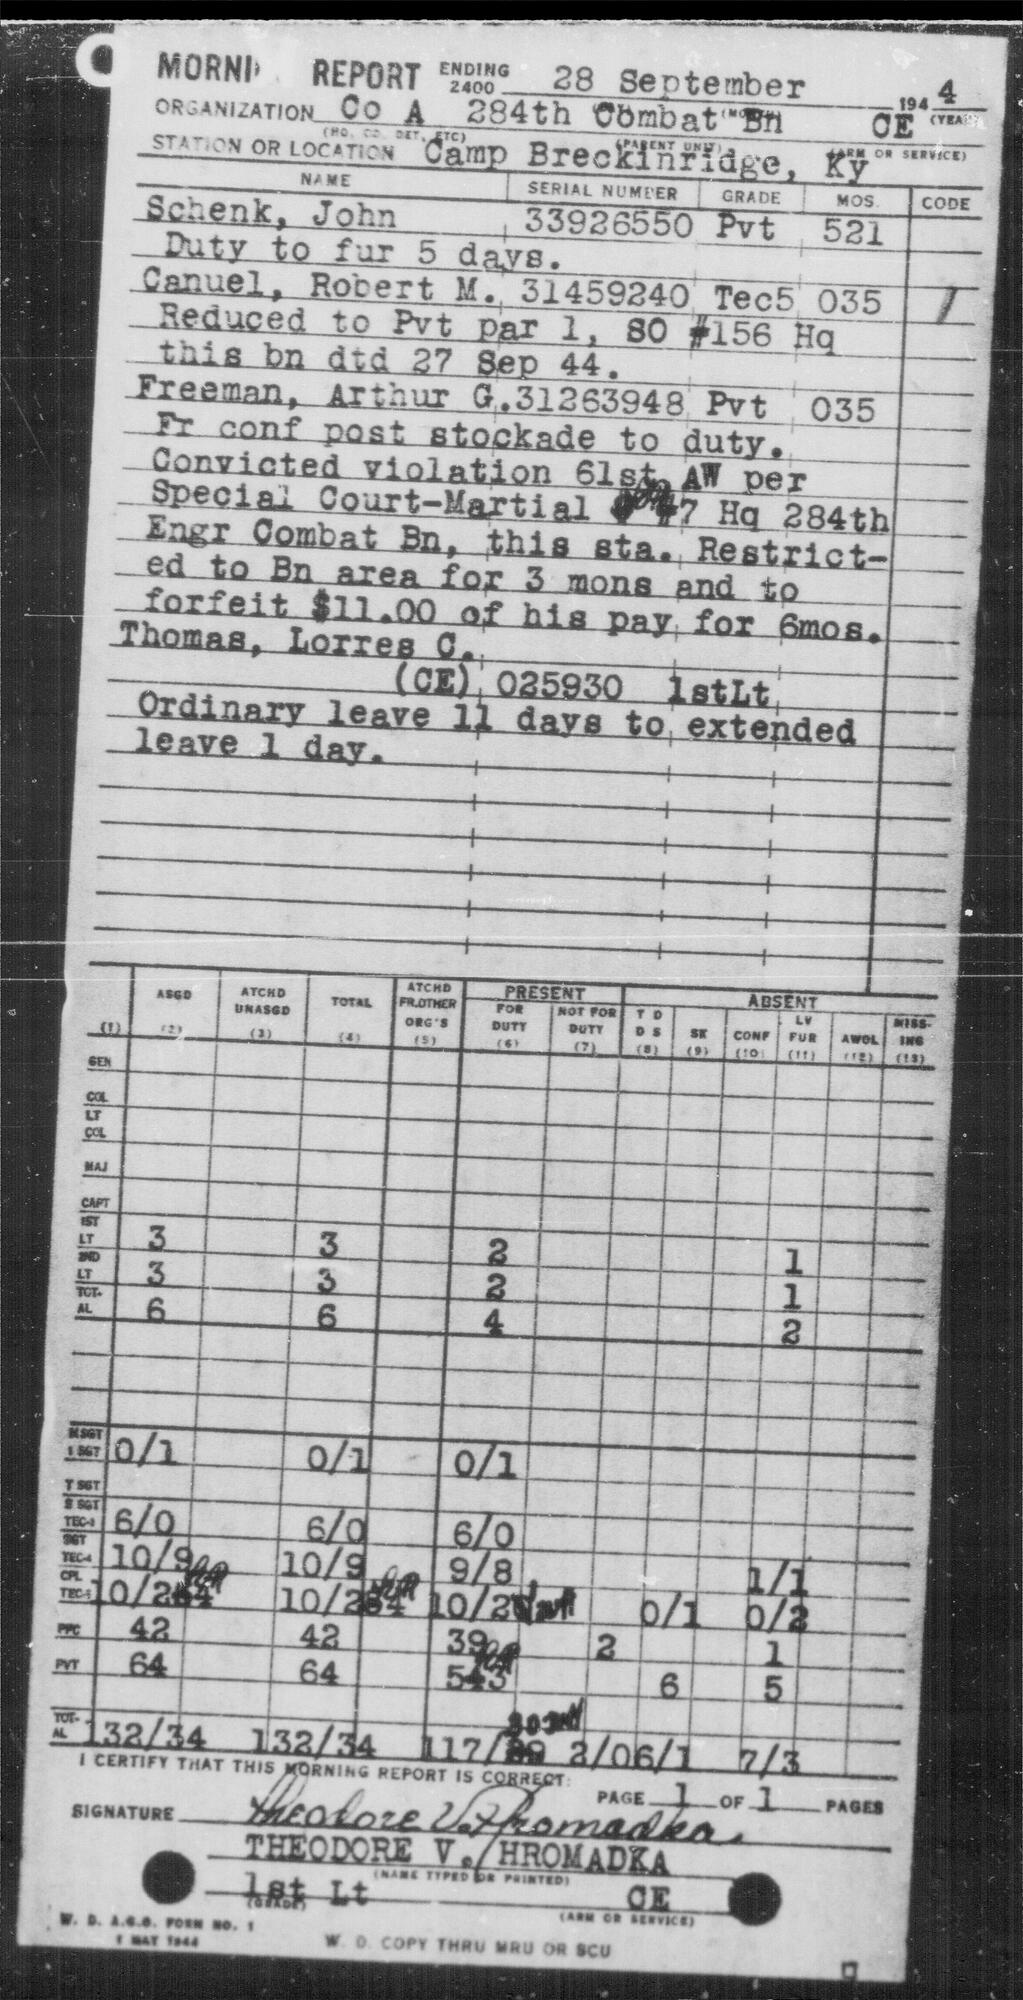 MORNI REPORT ENDING 2400 28 September 1944
ORGANIZATION Co A 284th Combat Bn CE (YEAR)
(HQ. CO. DET. ETC) (PARENT UNIT) (ARM OR SERVICE)
STATION OR LOCATION Camp Breckinridge, Ky
NAME SERIAL NUMBER GRADE MOS. CODE
Schenk, John 33926550 Pvt 521
Duty to fur 5 days.
Canuel, Robert M. 31459240 Tec5 035 /
Reduced to Pvt par 1, SO #156 Hq
this bn dtd 27 Sep 44.
Freeman, Arthur G. 31263948 Pvt 035
Fr conf post stockade to duty.
Convicted violation 61st AW per
Special Court-Martial #7 Hq 284th
Engr Combat Bn, this sta. Restrict-
ed to Bn area for 3 mons and to
forfeit $11.00 of his pay for 6mos.
Thomas, Lorres C.
(CE) 025930 1stLt
Ordinary leave 11 days to extended
leave 1 day.
ASGD ATCHD UNASGD TOTAL ATCHD FR.OTHER ORG'S PRESENT FOR DUTY NOT FOR DUTY ABSENT T D D S SK CONF LV FUR AWOL MISS-ING
(1) (2) (3) (4) (5) (6) (7) (8) (9) (10) (11) (12) (13)
GEN
COL
LT COL
MAJ
CAPT
1ST LT 3 3 2 1
2ND LT 3 3 2 1
TOT-AL 6 6 4 2
M SGT
1 SGT 0/1 0/1 0/1
T SGT
S SGT
TEC-3 6/0 6/0 6/0
SGT
TEC-4 10/9 10/9 9/8 1/1
CPL
TEC-5 10/24 10/24 10/2 0/1 0/2
PFC 42 42 39 2 1
PVT 64 64 53 6 5
30
TOT-AL 132/34 132/34 117/ 2/0 6/1 7/3
I CERTIFY THAT THIS MORNING REPORT IS CORRECT:
PAGE 1 OF 1 PAGES
SIGNATURE Theodore V. Hromadka
THEODORE V. HROMADKA
(NAME TYPED OR PRINTED)
1st Lt CE
(GRADE) (ARM OR SERVICE)
W. D. A.G.O. FORM NO. 1
1 MAY 1944
W. D. COPY THRU MRU OR SCU